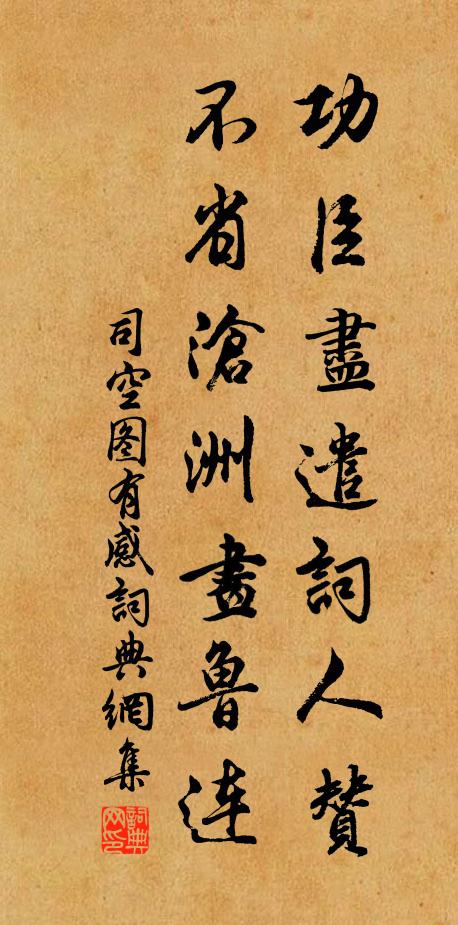 功臣盡遣詞人贊
不省滄洲畫魯连
司空图有感詞典網集
詞典网印